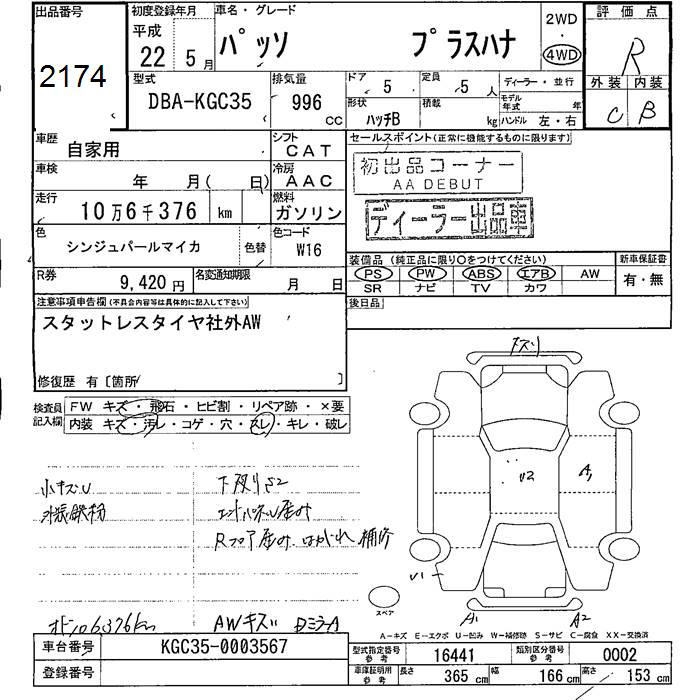 出品番号
2174
初度登録年月
平成
22 5月
車名・グレード
パッソ プラスハナ
2WD
・
4WD
評価点
R
外装 内装
C B
型式
DBA-KGC35
排気量
996 CC
ドア 5
定員 5 人
ディーラー・並行
形状 ハッチB
積載 kg
モデル年式 年
ハンドル 左・右
車歴
自家用
シフト
CAT
車検 年 月( 日)
冷房
AAC
走行
10万6千376 km
燃料
ガソリン
色
シンジュパールマイカ
色替
色コード
W16
R券 9,420円
名変通知期限 月 日
セールスポイント(正常に機能するものに限ります)
初出品コーナー
AA DEBUT
ディーラー出品車
装備品(純正品に限り〇をつけてください)
新車保証書
PS PW ABS エアB AW
SR ナビ TV カワ
有・無
後日品
注意事項申告欄(不具合内容等は具体的に記入して下さい)
スタットレスタイヤ社外AW
修復歴 有〔箇所 〕
検査員記入欄
FW キズ・飛石・ヒビ割・リペア跡・×要
内装 キズ・汚レ・コゲ・穴・スレ・キレ・破レ
下ズリ
U2 A1
小キズU
下廻りS2
Rフロア 補修
U1
スペア
A1 A2
AWキズ DミラーA
A-キズ E-エクボ U-凹み W-補修跡 S-サビ C-腐食 XX-交換済
車台番号 KGC35-0003567
登録番号
型式指定番号参考 16441
類別区分番号参考 0002
車庫証明用参考
長さ 365 cm 幅 166 cm 高さ 153 cm